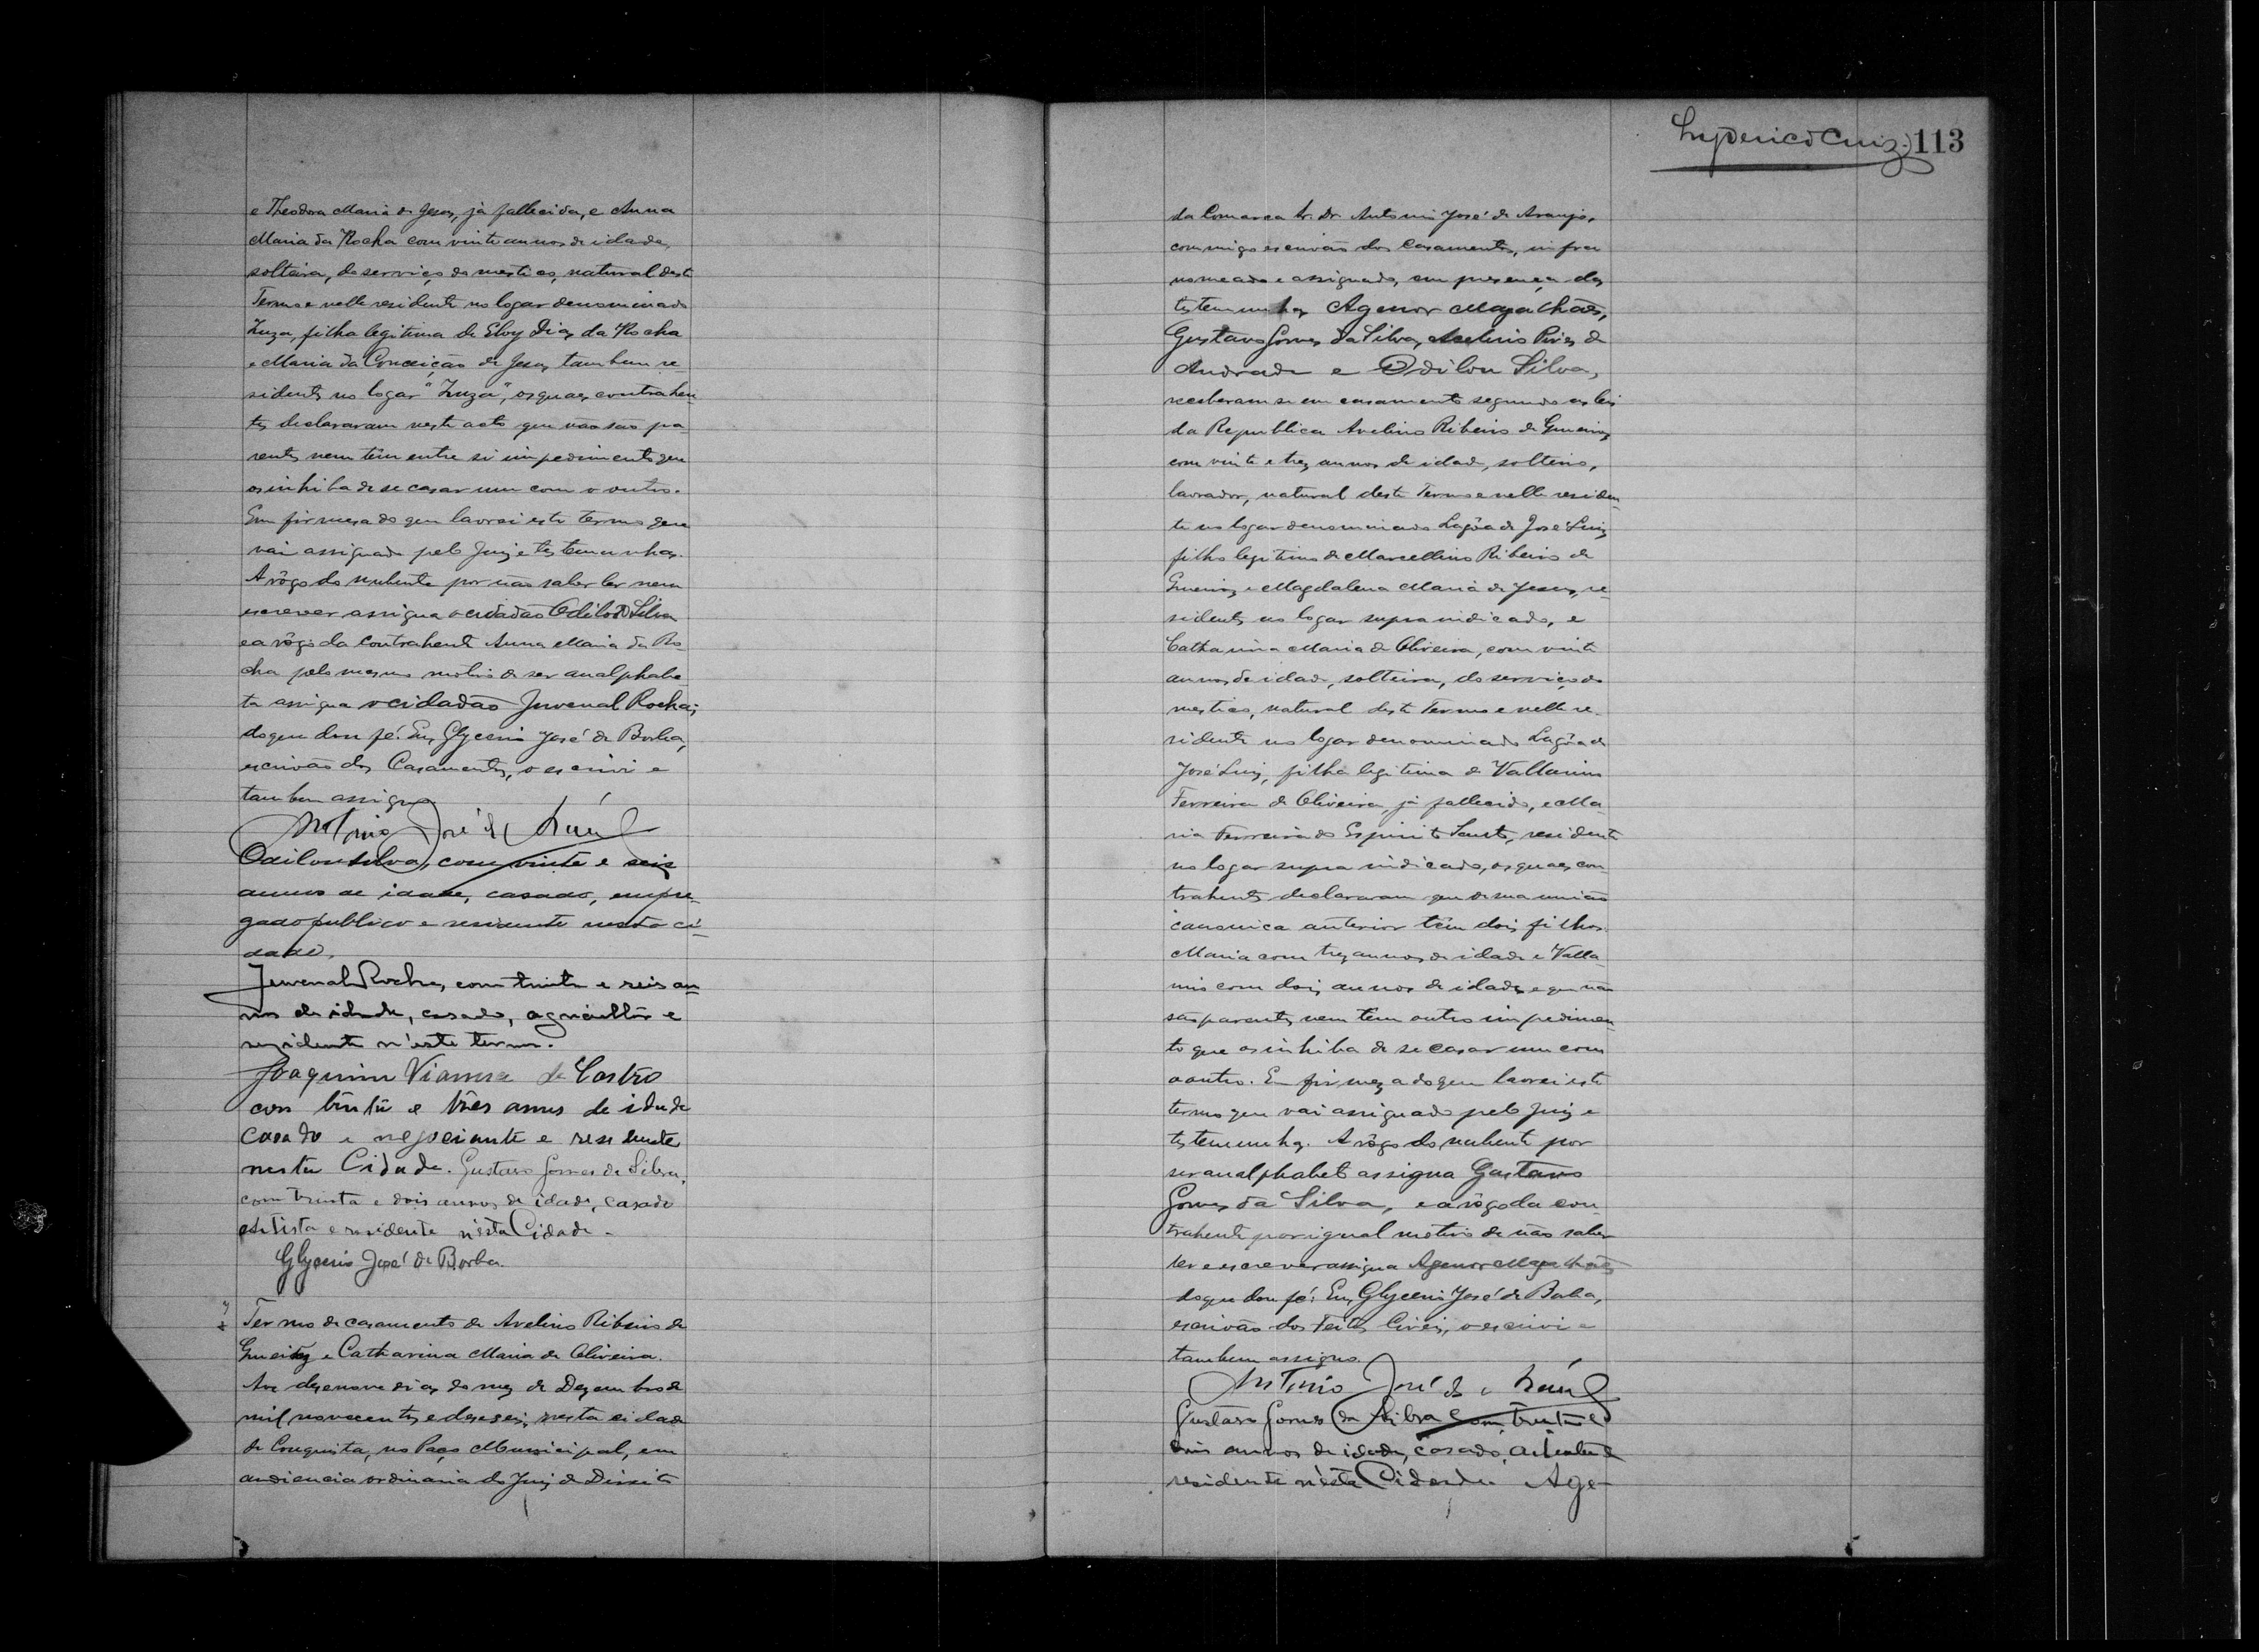 e Theodora Maria de Jesus, já fallecida, e Anna
Maria da Rocha com vinte annos de idade,
solteira, do serviço domestico, natural deste
Termo e nelle residente no logar denominado
Zuza, filha legitima de Eloy Dias da Rocha
e Maria da Conceição de Jesus, tambem re-
sidentes no logar "Zuza", os quaes contrahen-
tes declararam neste acto que não são pa-
rentes nem têm entre si impedimento que
os inhiba de se casar um com o outro.
Em firmesa do que lavrei este termo que
vai assignado pelo Juiz e testemunhas.
A rôgo do nubente por não saber ler nem
escrever assigna o cidadão Odilon Silva
e a rôgo da contrahente Anna Maria da Ro-
cha pelo mesmo motivo de ser analphabe-
ta assigna o cidadão Juvenal Rocha;
do que dou fé. Eu, Glycerio José de Borba,
escrivão dos Casamentos, o escrivi e
tambem assigno.
Antonio José de Araujo
Odilon Silva, com vinte e seis
annos de idade, casado, empre-
gado publico e residente nesta ci-
dade.
Juvenal Rocha, com trinta e seis an-
nos de idade, casado, agricultôr e
rezidente n'este termo.
Joaquim Vianna de Castro
con trinta e três annos de idade
casado e negociante e residente
nesta Cidade. Gustavo Gomes da Silva,
com trinta e dois annos de idade, casado
artista e residente nésta Cidade.
Glycerio José de Borba.
Termo de casamento de Avelino Ribeiro de
Queiroz e Catharina Maria de Oliveira.
Aos desenove dias do mez de Dezembro de
mil novecentos e deseseis, nesta cidade
de Conquista, no Paço Municipal, em
audiencia ordinaria do Juiz de Direito
113
da Comarca Sr. Dr. Antonio José de Araujo,
commigo escrivão dos Casamentos, infra
nomeado e assignado, em presença das
testemunhas Agenor Magalhães,
Gustavo Gomes da Silva, Avelino Pires de
Andrade e Odilon Silva,
receberam-se em casamento segundo as leis
da Republica Avelino Ribeiro de Queiroz
com vinte e trez annos de idade, solteiro,
lavrador, natural deste Termo e nelle residen-
te no logar denominado Lagôa de José Luiz
filho legitimo de Marcellino Ribeiro de
Queiroz e Magdalena Maria de Jesus, re-
sidentes no logar supra indicado, e
Catharina Maria de Oliveira, com vinte
annos de idade, solteira, do serviço do-
mestico, natural deste Termo e nelle re-
sidente no logar denominado Lagôa de
José Luiz, filha legitima de Vallarino
Ferreira de Oliveira, já fallecido, e Ma-
ria Ferreira do Espirito Santo, residente
no logar supra indicado, os quaes con-
trahentes declararam que de sua união
canonica anterior têm dois filhos.
Maria com trez annos de idade e Valla-
rino com dois annos de idade, e que não
são parentes nem têm outro impedimen-
to que os inhiba de se casar um com
o outro. Em firmeza do que lavrei este
termo que vai assignado pelo Juiz e
testemunhas. A rôgo do nubente por
ser analphabeto assigna Gustavo
Gomes da Silva, e a rôgo da con-
trahente por igual motivo de não saber
ler e escrever assigna Agenor Magalhães
do que dou fé. Eu, Glycerio José de Borba,
escrivão dos Feitos Civeis, o escrivi e
tambem assigno.
Antonio José de Araujo
Gustavo Gomes da Silva com trinta e
dois annos de idade, casado, artista e
residente nésta Cidade. Age-